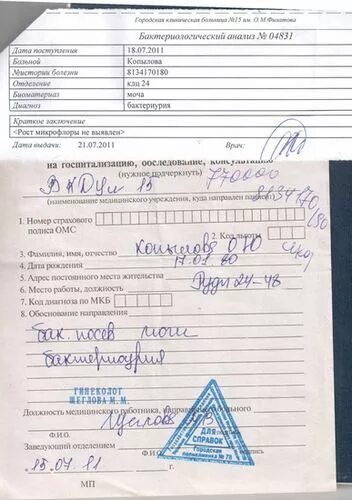 Городская клиническая больница №15 им. О.М.Филатова
Бактериологический анализ № 04831
Дата поступления 18.07.2011
Больной Копылова
№истории болезни 8134170180
Отделение клд 24
Биоматериал моча
Диагноз бактериурия
Краткое заключение
<Рост микрофлоры не выявлен>
Дата выдачи: 21.07.2011 Врач:
на госпитализацию, обследование, консультацию
(нужное подчеркнуть) 770000
15
(наименование медицинского учреждения, куда направлен пациент)
1. Номер страхового
полиса ОМС
2. Код льготы
3. Фамилия, имя, отчество Копылова
4. Дата рождения 17.01.80
5. Адрес постоянного места жительства 24-43
6. Место работы, должность
7. Код диагноза по МКБ
8. Обоснование направления
бак. посев мочи
бактериурия
ГИНЕКОЛОГ
ЩЕГЛОВА М. М.
Должность медицинского работника, направившего больного
Щеглова
Ф.И.О. подпись
Заведующий отделением
Ф.И.О. подпись
ДЛЯ
СПРАВОК
Городская
поликлиника № 70
15.07.11 г.
МП